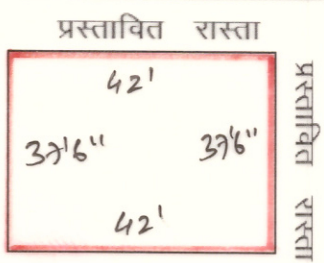 प्रस्तावित रास्ता
42'
37'6"
37'6"
42'
प्रस्तावित रास्ता